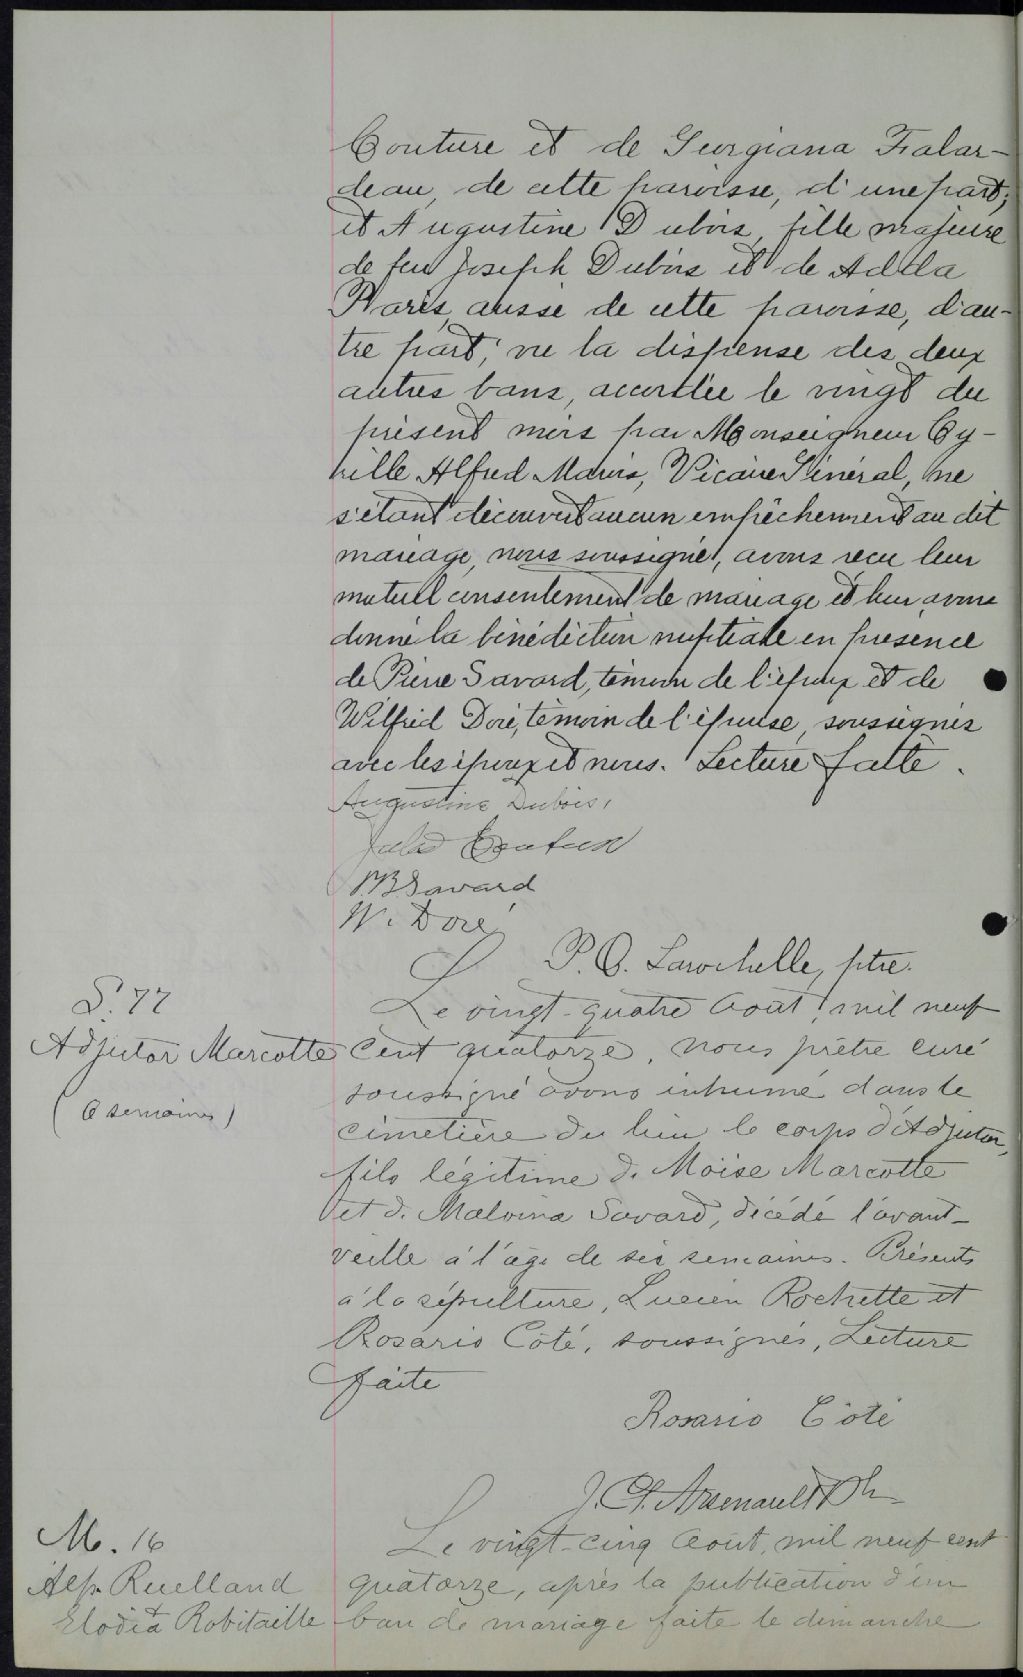 Couture et de Georgiana Falar-
deau, de cette paroisse, d'une part;
et Augustine Dubois, fille majeure
de feu Joseph Dubois et de Adda
Paris, aussi de cette paroisse, d'au-
tre part; vu la dispense des deux
autres bans, accordée le vingt du
présent mois par Monseigneur Cy-
rille Alfred Marois, Vicaire Général, ne
s'étant découvert aucun empêchement au dit
mariage, nous soussigné, avons reçu leur
mutuel consentement de mariage et leur avons
donné la bénédiction nuptiale en présence
de Pierre Savard, témoin de l'époux et de
Wilfrid Doré, témoin de l'épouse, soussignés
avec les époux et nous. Lecture faite.
Augustine Dubois,
Jules Couture
P.B. Savard
W. Doré
P. O. Larochelle, ptre.
S. 77
Adjutor Marcotte
(6 semaines)
Le vingt-quatre Août, mil neuf
cent quatorze, nous prêtre curé
soussigné avons inhumé dans le
cimetière du lieu le corps d'Adjutor,
fils légitime de Moïse Marcotte
et de Malvina Savard, décédé l'avant-
veille à l'âge de six semaines. Présents
à la sépulture, Lucien Rochette et
Rosario Côté, soussignés, Lecture
faite
Rosario Côté
J. Arsenault Ptr
M. 16
Alp. Ruelland
&
Elodia Robitaille
Le vingt-cinq Août, mil neuf cent
quatorze, après la publication d'un
ban de mariage faite le dimanche